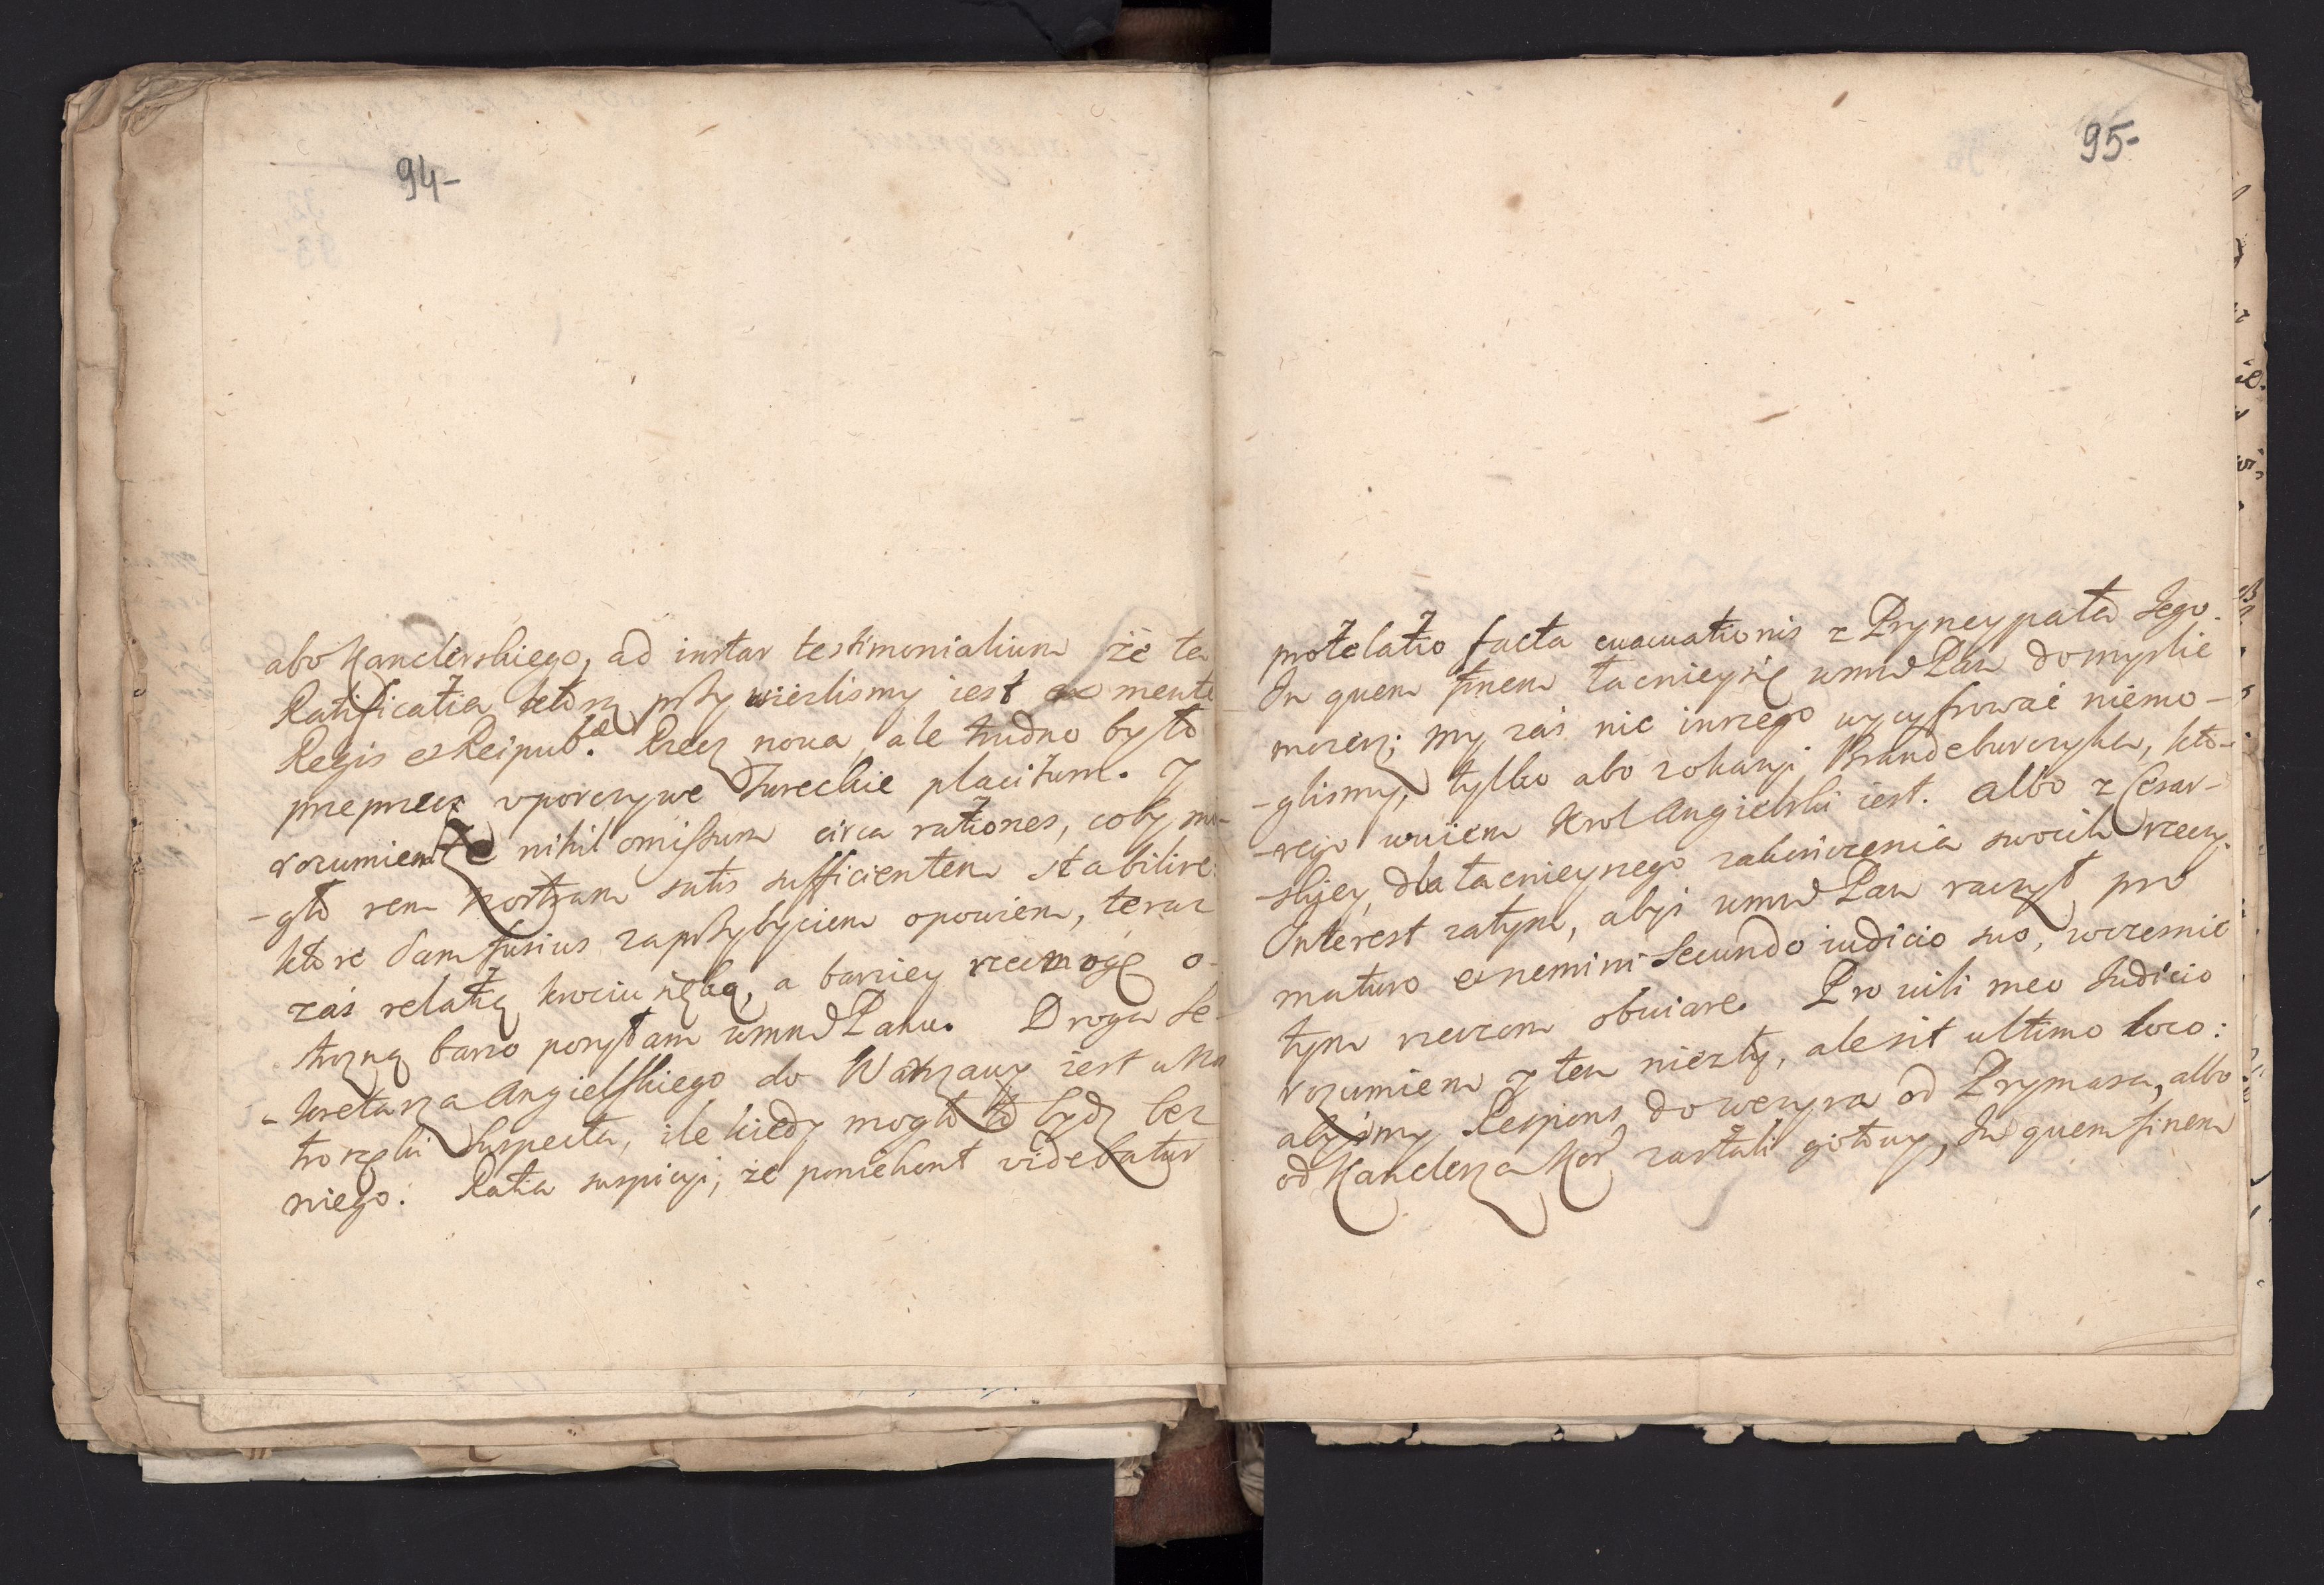 94-
abo Kanclerskiego, ad instar testimonialium że ta
Ratificatia ktorą przywiezlismy iest ex mente
Regis et Reipub. Rzecz nova, ale trudno było
przeprzec uporczywe Tureckie placitum. J
rozumiem że nihil omissum circa rationes, coby mo-
-gło rem nostram satis sufficientem stabilire:
ktore dam fusius za przybyciem opowiem, teraz
zaś relatią krociuńęką, a barziey rzec mogę o-
trozną barzo posyłam wmmPanu. Droga Se-
-kretarza Angielskiego do Warszawy iest
trorzęki suspecta, ile kiedy mogło to bydz bez
niego. Ratia suspicyi, że poniekont videbatur
95-
protelatio facta evacuationis z Pryncypała Jego.
In quem finem łacnieysię wmm Pan domyslic
mozesz; my zaś nic inszego wycyfrować niemo-
-glismy, tylko abo z okazyi Brandeburczyka, kto-
-rego wuiem Krol Angielski iest. Albo z Cesar-
-skiey, dla łacnieyszego zakończenia swoich rzeczy.
Interest zatym, abyś wmm Pan raczył pro
maturo et nemini secundo iudicio suo, wczesnie
tym rzeczom obviare. Pro vili meo Judicio
rozumiem y ten niezły, ale sit ultimo loco:
abysmy Respons do wezyra od Prymasa, albo
od Kanclerza Kor zastali gotowy, In quem finem